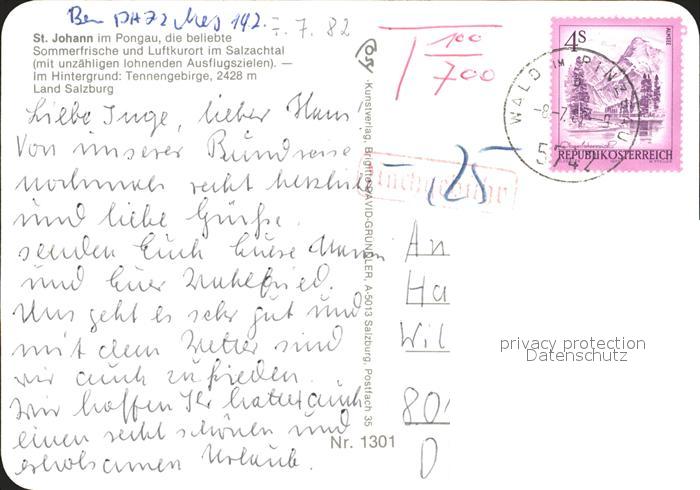 7. 7. 82
St. Johann im Pongau, die beliebte
Sommerfrische und Luftkurort im Salzachtal
(mit unzähligen lohnenden Ausflugszielen). —
Im Hintergrund: Tennengebirge, 2428 m
Land Salzburg
Liebe Inge, lieber Hans!
Von unserer Rundreise
nochmals recht herzliche
und liebe Grüße
senden Euch Eure
und Euer
Uns geht es sehr gut und
mit dem Wetter sind
wir auch zufrieden.
Wir hoffen Ihr hattet auch
einen recht schönen und
erholsamen Urlaub.
Kunstverlag, Brigitte DAVID-GRÜNDLER, A-5013 Salzburg, Postfach 35
Nr. 1301
T 100
700
25
Nachgebühr
4S
ALMSEE
REPUBLIK ÖSTERREICH
WALD IM PINZGAU
5742
An
Ha
Wil
80
D
privacy protection
Datenschutz